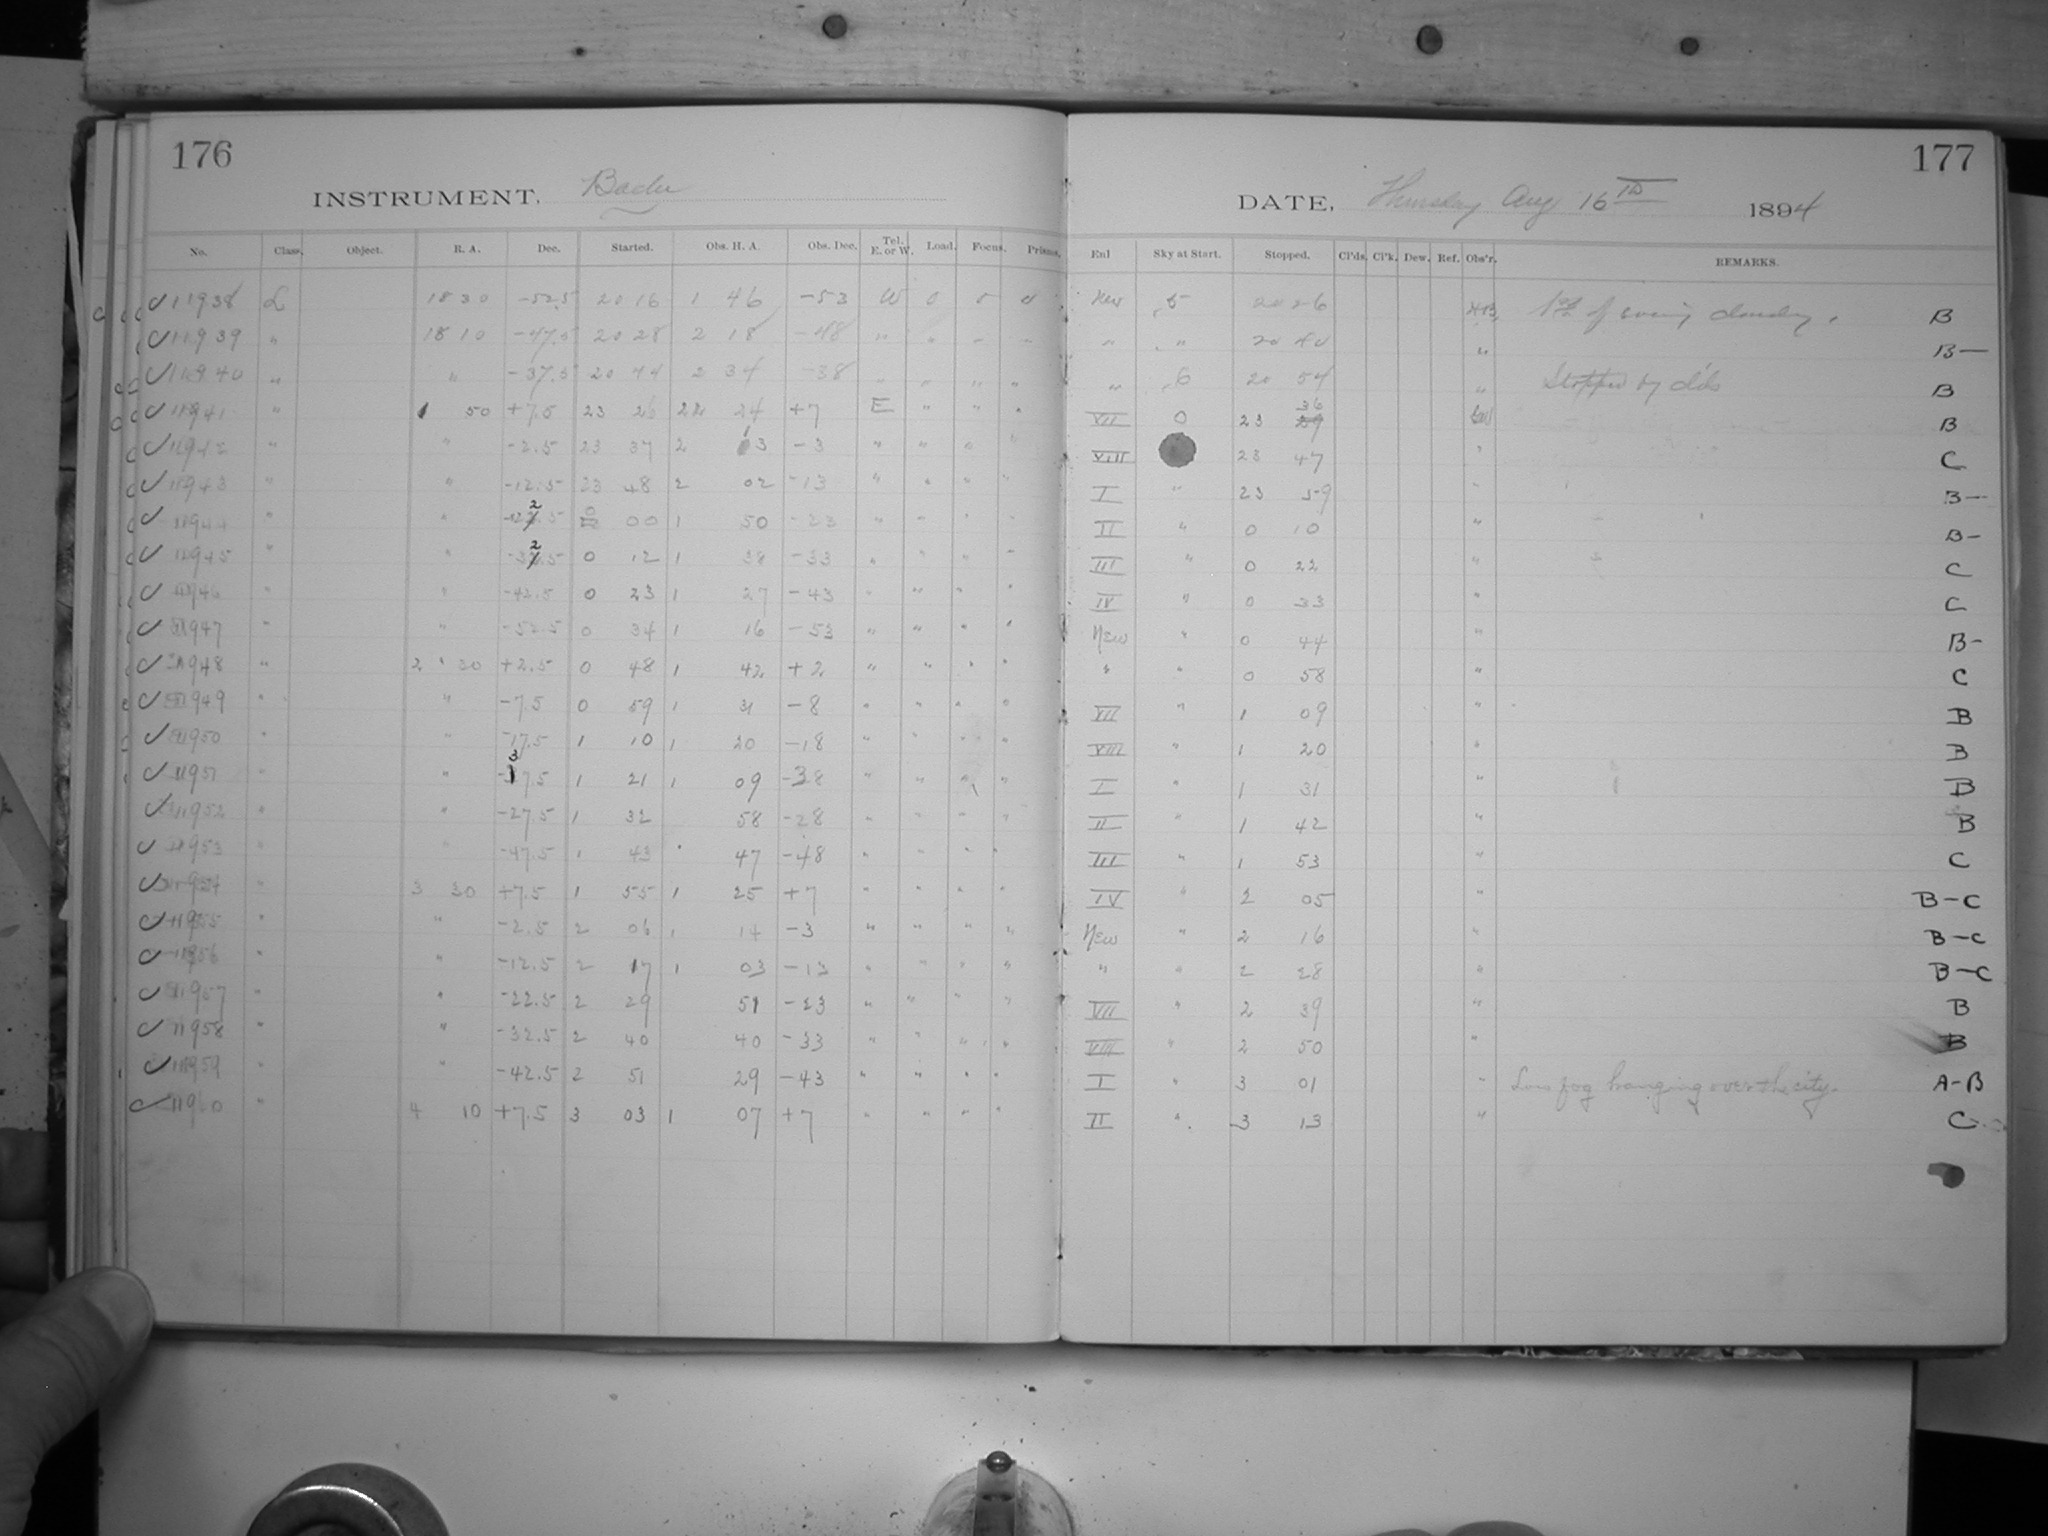 176
INSTRUMENT. Bache
No. Class. Object. R. A. Dec. Started. Obs. H. A. Obs. Dec. Tel. E. or W. Load. Focus. Prisms.
11938 L 18 30 -52.5 20 16 1 46 -53 W 0
11939 " 18 10 -47.5 20 28 2 18 -48 " " " "
11940 " " -37.5 20 44 2 34 -38 " " " "
11941 " 1 50 +7.5 23 26 22 24 +7 E " " "
11942 " " -2.5 23 37 2 13 -3 " " " "
11943 " " -12.5 23 48 2 02 -13 " " " "
11944 " " -22.5 0 00 1 50 -23 " " " "
11945 " " -32.5 0 12 1 38 -33 " " " "
11946 " " -42.5 0 23 1 27 -43 " " " "
11947 " " -52.5 0 34 1 16 -53 " " " "
11948 " 2 30 +2.5 0 48 1 42 +2 " " " "
11949 " " -7.5 0 59 1 31 -8 " " " "
11950 " " -17.5 1 10 1 20 -18 " " " "
11951 " " -37.5 1 21 1 09 -38 " " " "
11952 " " -27.5 1 32 58 -28 " " " "
11953 " " -47.5 1 43 " 47 -48 " " " "
11954 " 3 30 +7.5 1 55 1 25 +7 " " " "
11955 " " -2.5 2 06 1 14 -3 " " " "
11956 " " -12.5 2 17 1 03 -13 " " " "
11957 " " -22.5 2 29 51 -23 " " " "
11958 " " -32.5 2 40 40 -33 " " " "
11959 " " -42.5 2 51 29 -43 " " " "
11960 " 4 10 +7.5 3 03 1 07 +7 " " " "
177
DATE, Thursday Aug 16th 1894
Enl Sky at Start. Stopped. Cl'ds. Cl'k. Dew. Ref. Obs'r. REMARKS.
New 5 20 26 1st of evening cloudy. B
" " 20 40 " B—
" 6 20 54 " Stopped by cl'ds B
VII 0 23 36 B
VIII 23 47 " C
I " 23 59 " B—
II " 0 10 " B-
III " 0 22 " C
IV " 0 33 " C
New " 0 44 " B-
" " 0 58 " C
VII " 1 09 " B
VIII " 1 20 " B
I " 1 31 " B
II " 1 42 " B
III " 1 53 " C
IV " 2 05 " B-C
New " 2 16 " B-C
" " 2 28 " B-C
VII " 2 39 " B
VIII " 2 50 " B
I " 3 01 " Low fog hanging over the city. A-B
II " 3 13 " C